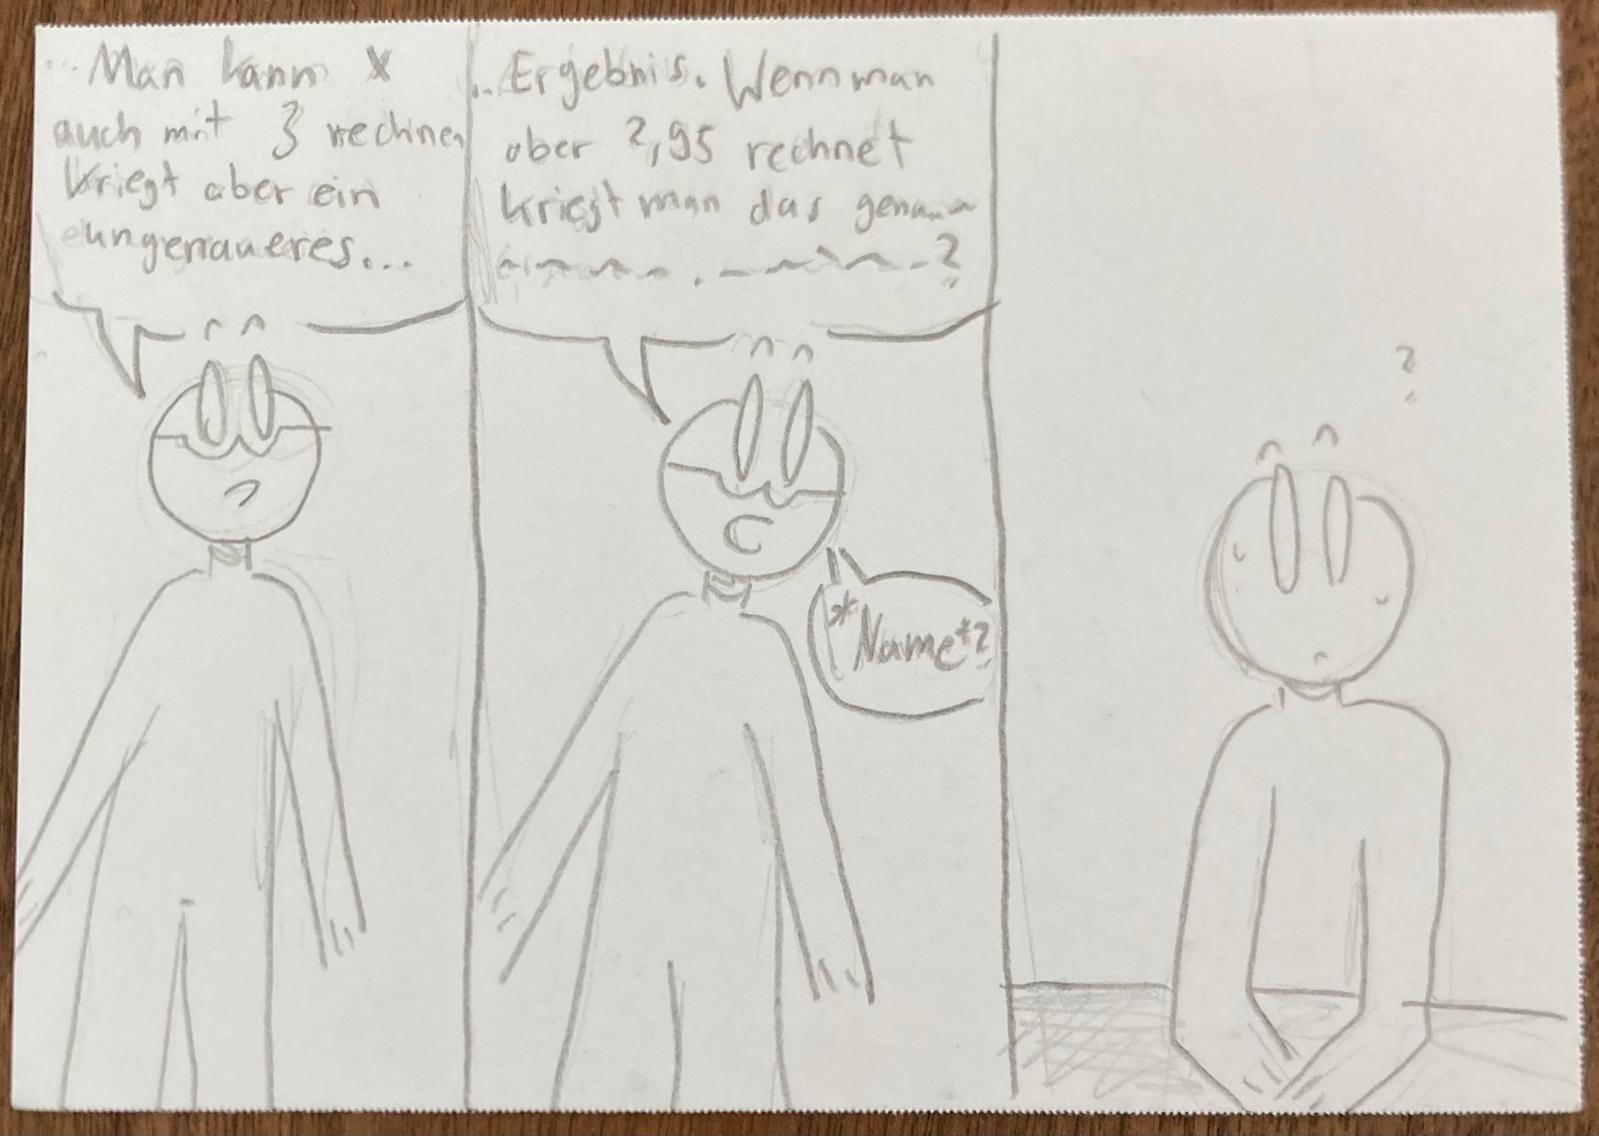 ...Man kann x
auch mit 3 rechnen
kriegt aber ein
ungenaueres...
...Ergebnis. Wenn man
aber 2,95 rechnet
kriegt man das genau
?
*Name*?
?